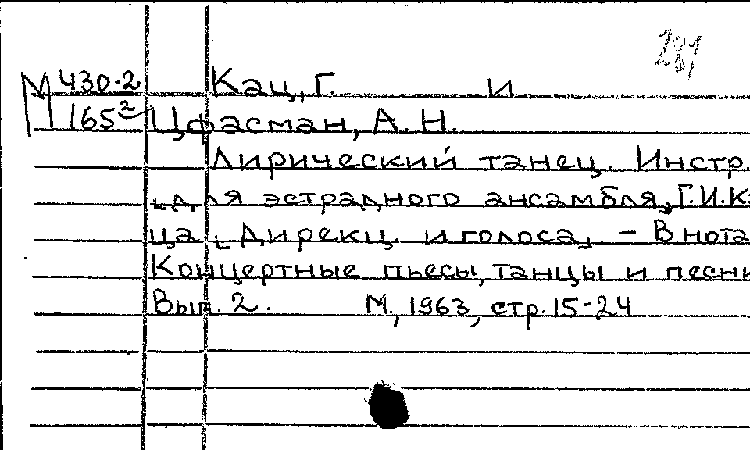 281
М 430-2 Кац, Г. и
165² Цфасман, А. Н.
Лирический танец. Инстр.
для эстрадного ансамбля, Г.И.К
ца. Дирекц. и голоса, - В нота
Концертные пьесы, танцы и песни
Вып. 2. М, 1963, стр. 15-24